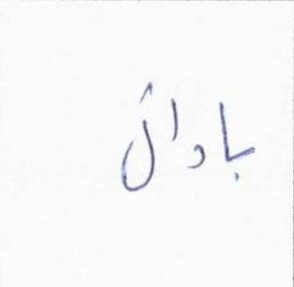 بادان